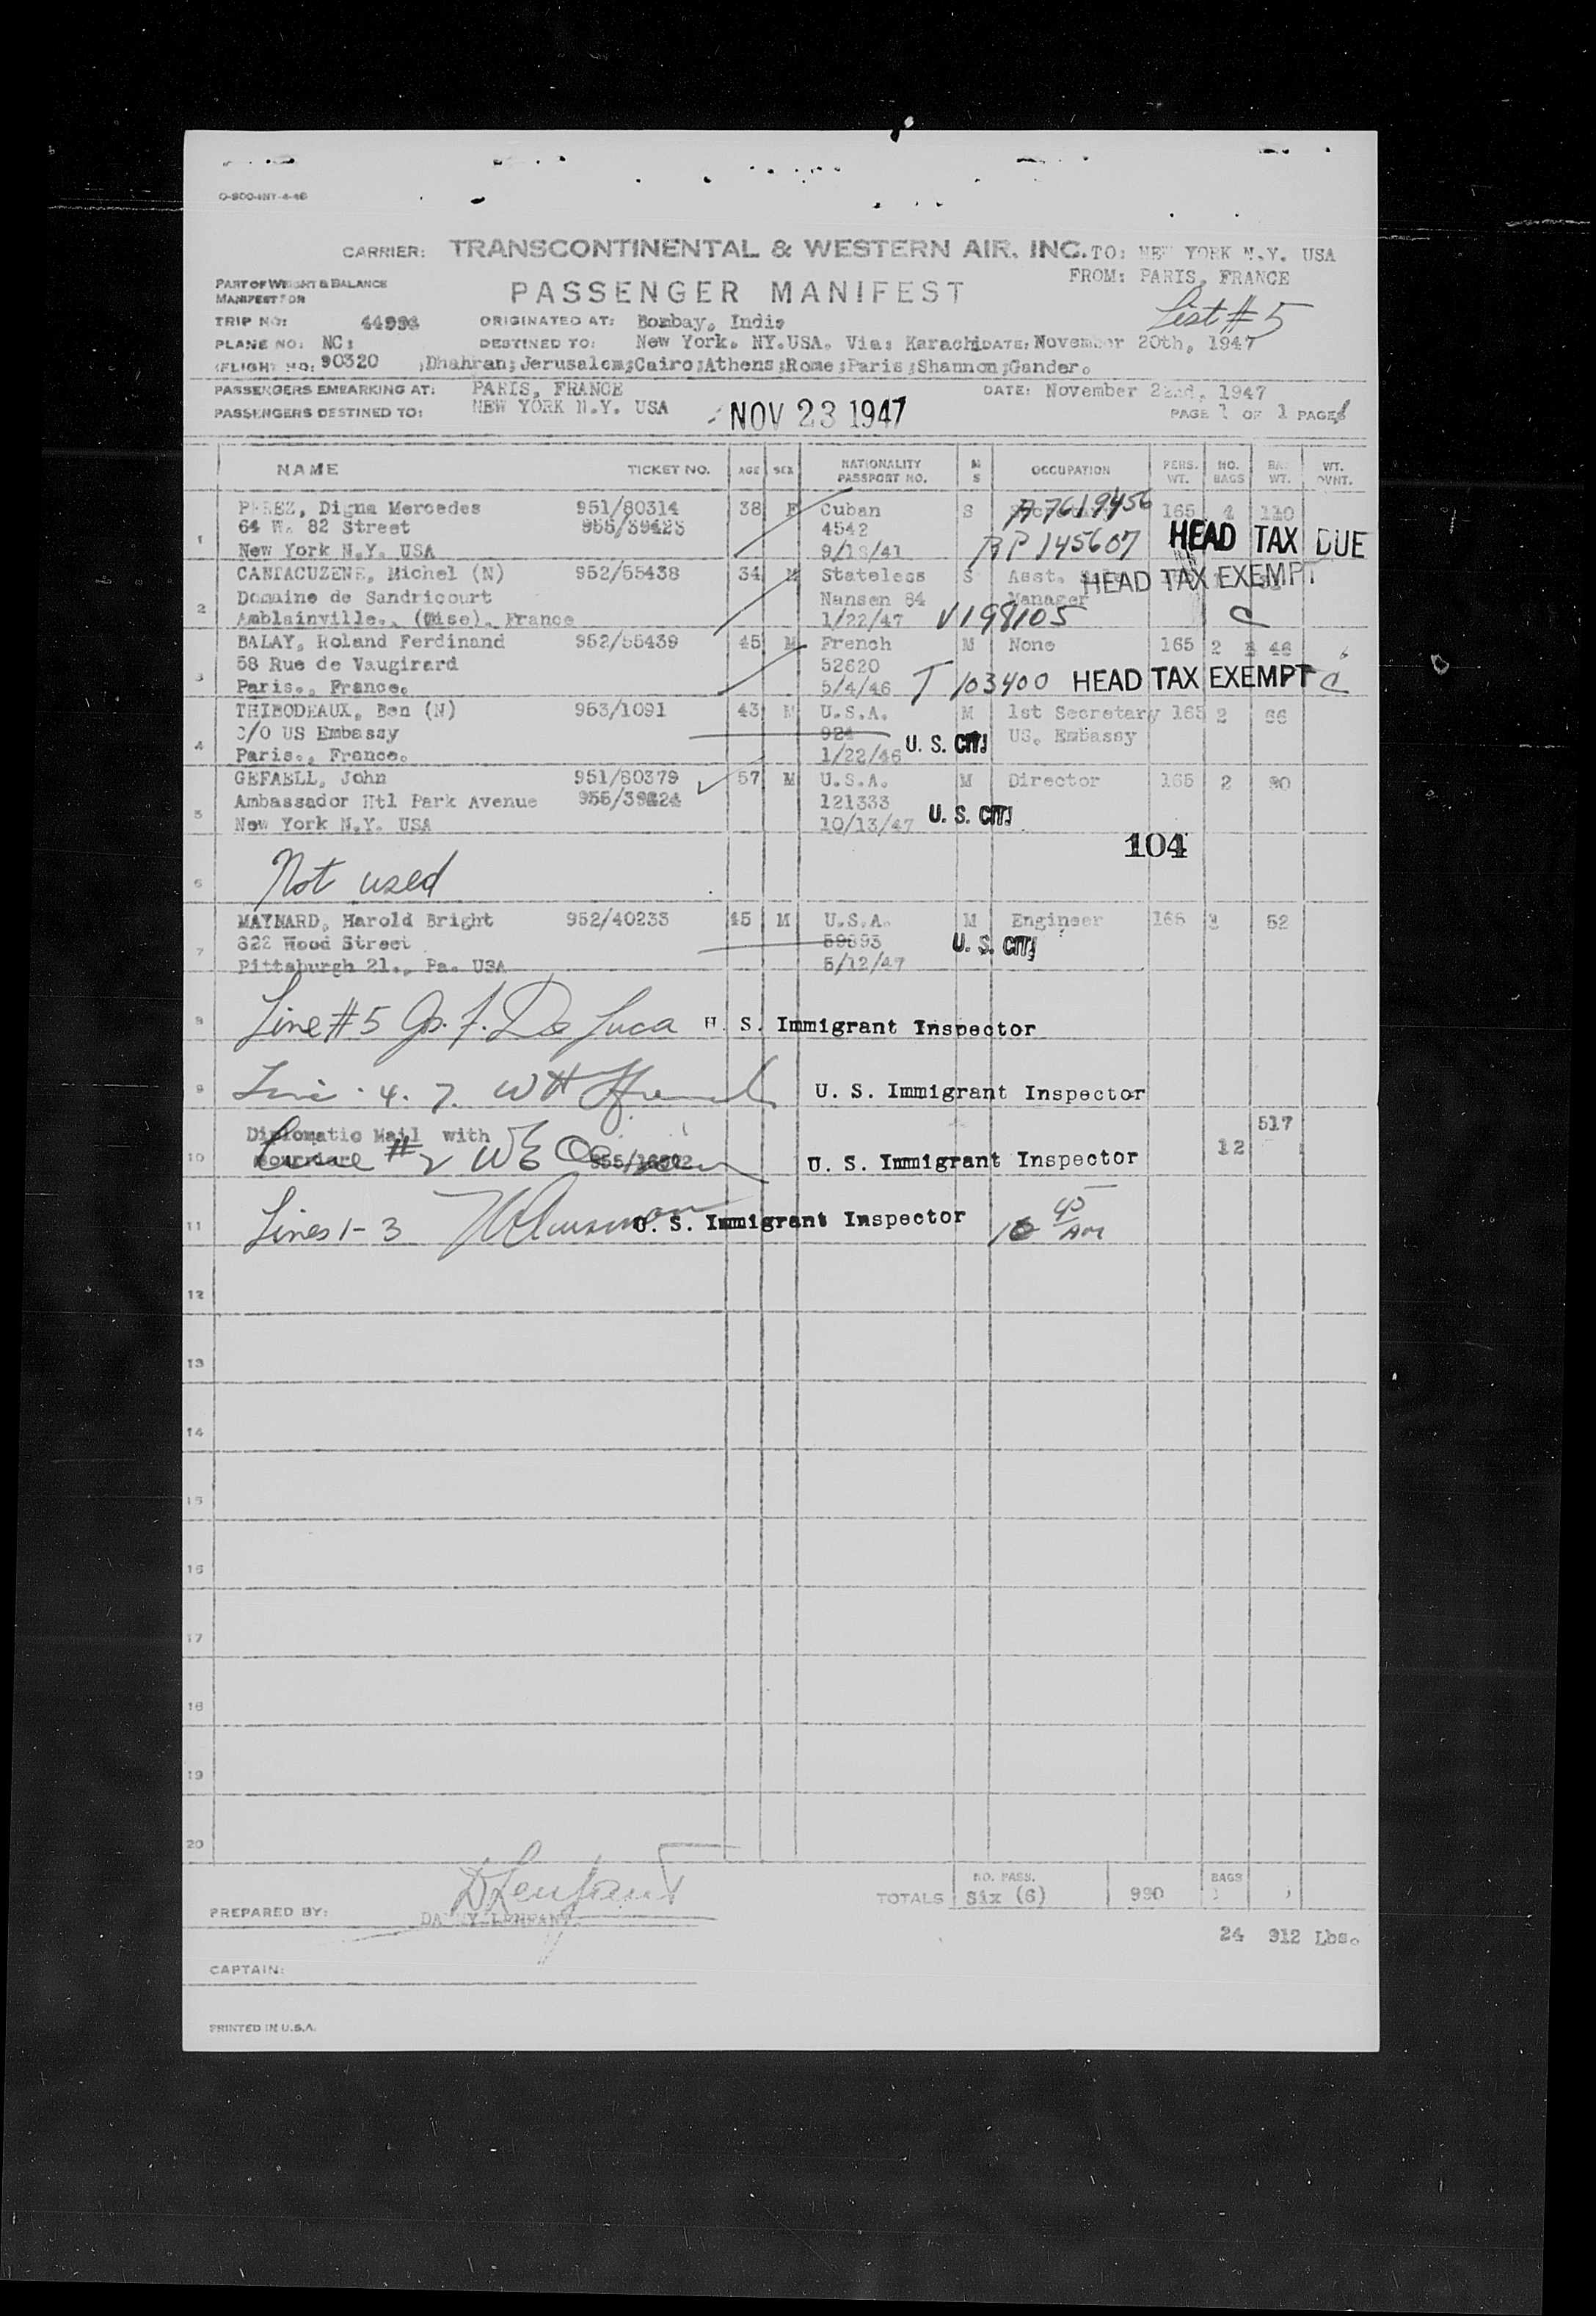 O-800-INT-4-46
CARRIER: TRANSCONTINENTAL & WESTERN AIR, INC. TO: NEW YORK N.Y. USA
FROM: PARIS, FRANCE
PART OF WEIGHT & BALANCE
MANIFEST FOR
PASSENGER MANIFEST
List #5
TRIP NO: ORIGINATED AT: Bombay, India
PLANE NO: NC: DESTINED TO: New York. NY.USA. Via: Karachi DATE: November 20th, 1947
(FLIGHT NO: 90320 )Dhahran;Jerusalem;Cairo;Athens;Rome;Paris;Shannon;Gander.
PASSENGERS EMBARKING AT: PARIS, FRANCE DATE: November 22nd, 1947
PASSENGERS DESTINED TO: NEW YORK N.Y. USA NOV 23 1947 PAGE 1 OF 1 PAGES
NAME TICKET NO. AGE SEX NATIONALITY PASSPORT NO. M S OCCUPATION PERS. WT. NO. BAGS BAG WT. WT. OVNT.
PEREZ, Digna Mercedes 951/80314 38 F Cuban S A7619456 165 4 110
64 W. 82 Street 955/39423 4542 HEAD TAX DUE
1 New York N.Y. USA 9/18/41 RP 145607
CANTACUZENE, Michel (N) 952/55438 34 M Stateless S Asst. HEAD TAX EXEMPT
Domaine de Sandricourt Nansen 84 Manager
2 Amblainville., (Oise). France 1/22/47 V198105 C
BALAY, Roland Ferdinand 952/55439 45 M French M None 165 2 46
58 Rue de Vaugirard 52620
3 Paris., France. 5/4/46 T 103400 HEAD TAX EXEMPT C
THIBODEAUX, Ben (N) 953/1091 43 M U.S.A. M 1st Secretary 165 2 66
C/O US Embassy 924 US. Embassy
4 Paris., France. 1/22/46 U. S. CIT.
GEFAELL, John 951/80379 57 M U.S.A. M Director 165 2 90
Ambassador Htl Park Avenue 955/39424 121333
5 New York N.Y. USA 10/13/47 U. S. CIT.
104
6 Not used
MAYNARD, Harold Bright 952/40233 45 M U.S.A. M Engineer 165 52
322 Wood Street 59893 U. S. CIT.
7 Pittsburgh 21., Pa. USA 5/12/47
8 Line #5 Jo. F. De Luca U. S. Immigrant Inspector
9 Line 4. 7. U. S. Immigrant Inspector
517
Diplomatic Mail with 12
10 Line # 2 U. S. Immigrant Inspector
11 Lines 1-3 U. S. Immigrant Inspector 10 45 AM
12
13
14
15
16
17
18
19
20
TOTALS NO. PASS. Six (6) 990 BAGS
PREPARED BY: DANNY LENFANT
24 912 Lbs.
CAPTAIN:
PRINTED IN U.S.A.